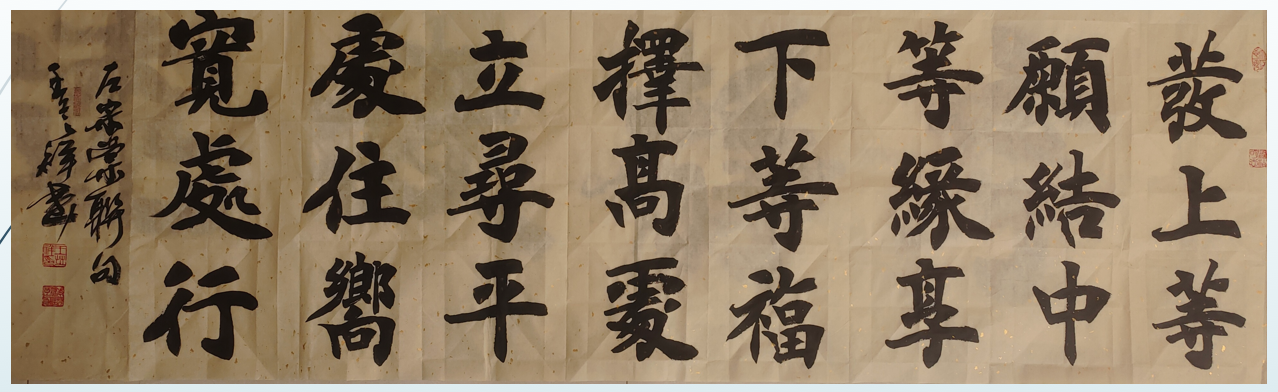 發上等
願結中
等緣享
下等福
擇髙處
立尋平
處住嚮
寬處行
左宗棠聯句
祥書